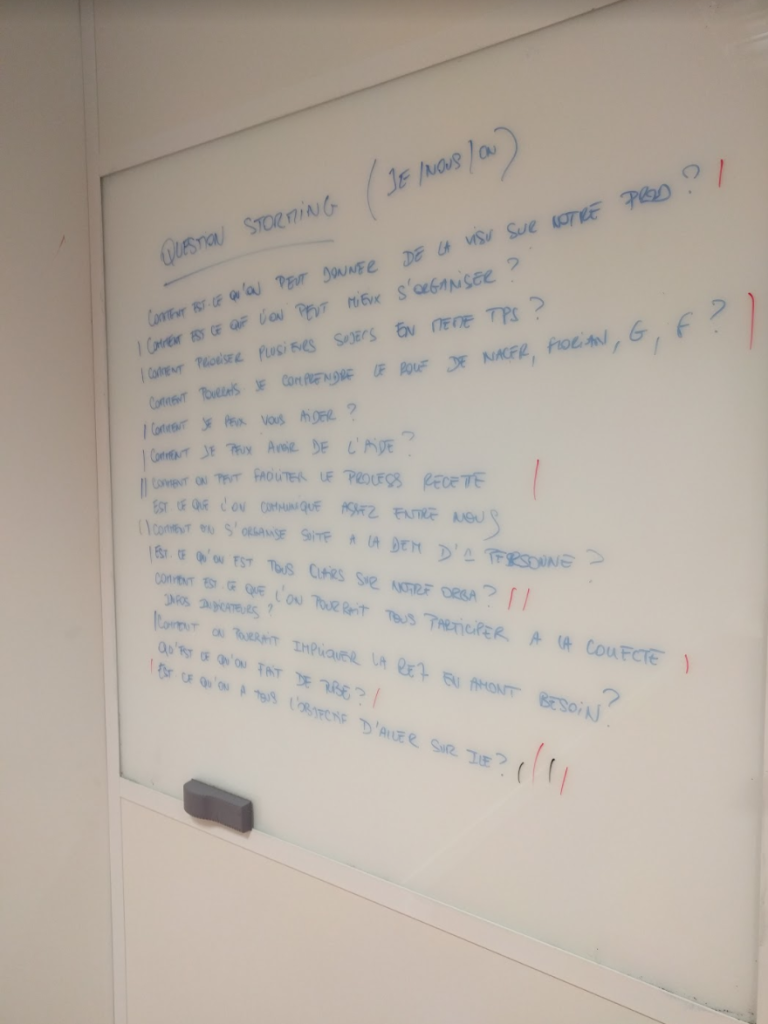 QUESTION STORMING (JE/NOUS/ON)
COMMENT EST-CE QU'ON PEUT DONNER DE LA VISU SUR NOTRE PROD ?
COMMENT EST CE QUE L'ON PEUT MIEUX S'ORGANISER ?
COMMENT PRIORISER PLUSIEURS SUJETS EN MEME TPS ?
COMMENT POURRAIS JE COMPRENDRE LE ROLE DE NACER, FLORIAN, G, F ?
COMMENT JE PEUX VOUS AIDER ?
COMMENT JE PEUX AVOIR DE L'AIDE ?
COMMENT ON PEUT FACILITER LE PROCESS RECETTE
EST CE QUE L'ON COMMUNIQUE ASSEZ ENTRE NOUS
COMMENT ON S'ORGANISE SUITE A LA DEM D'1 PERSONNE ?
EST-CE QU'ON EST TOUS CLAIRS SUR NOTRE ORGA ?
COMMENT EST CE QUE L'ON POURRAIT TOUS PARTICIPER A LA COLLECTE
INFOS INDICATEURS ?
COMMENT ON POURRAIT IMPLIQUER LA EN AMONT BESOIN ?
QU'EST CE QU'ON FAIT DE ?
EST CE QU'ON A TOUS L'OBJECTIF D'ALLER SUR ILE ?